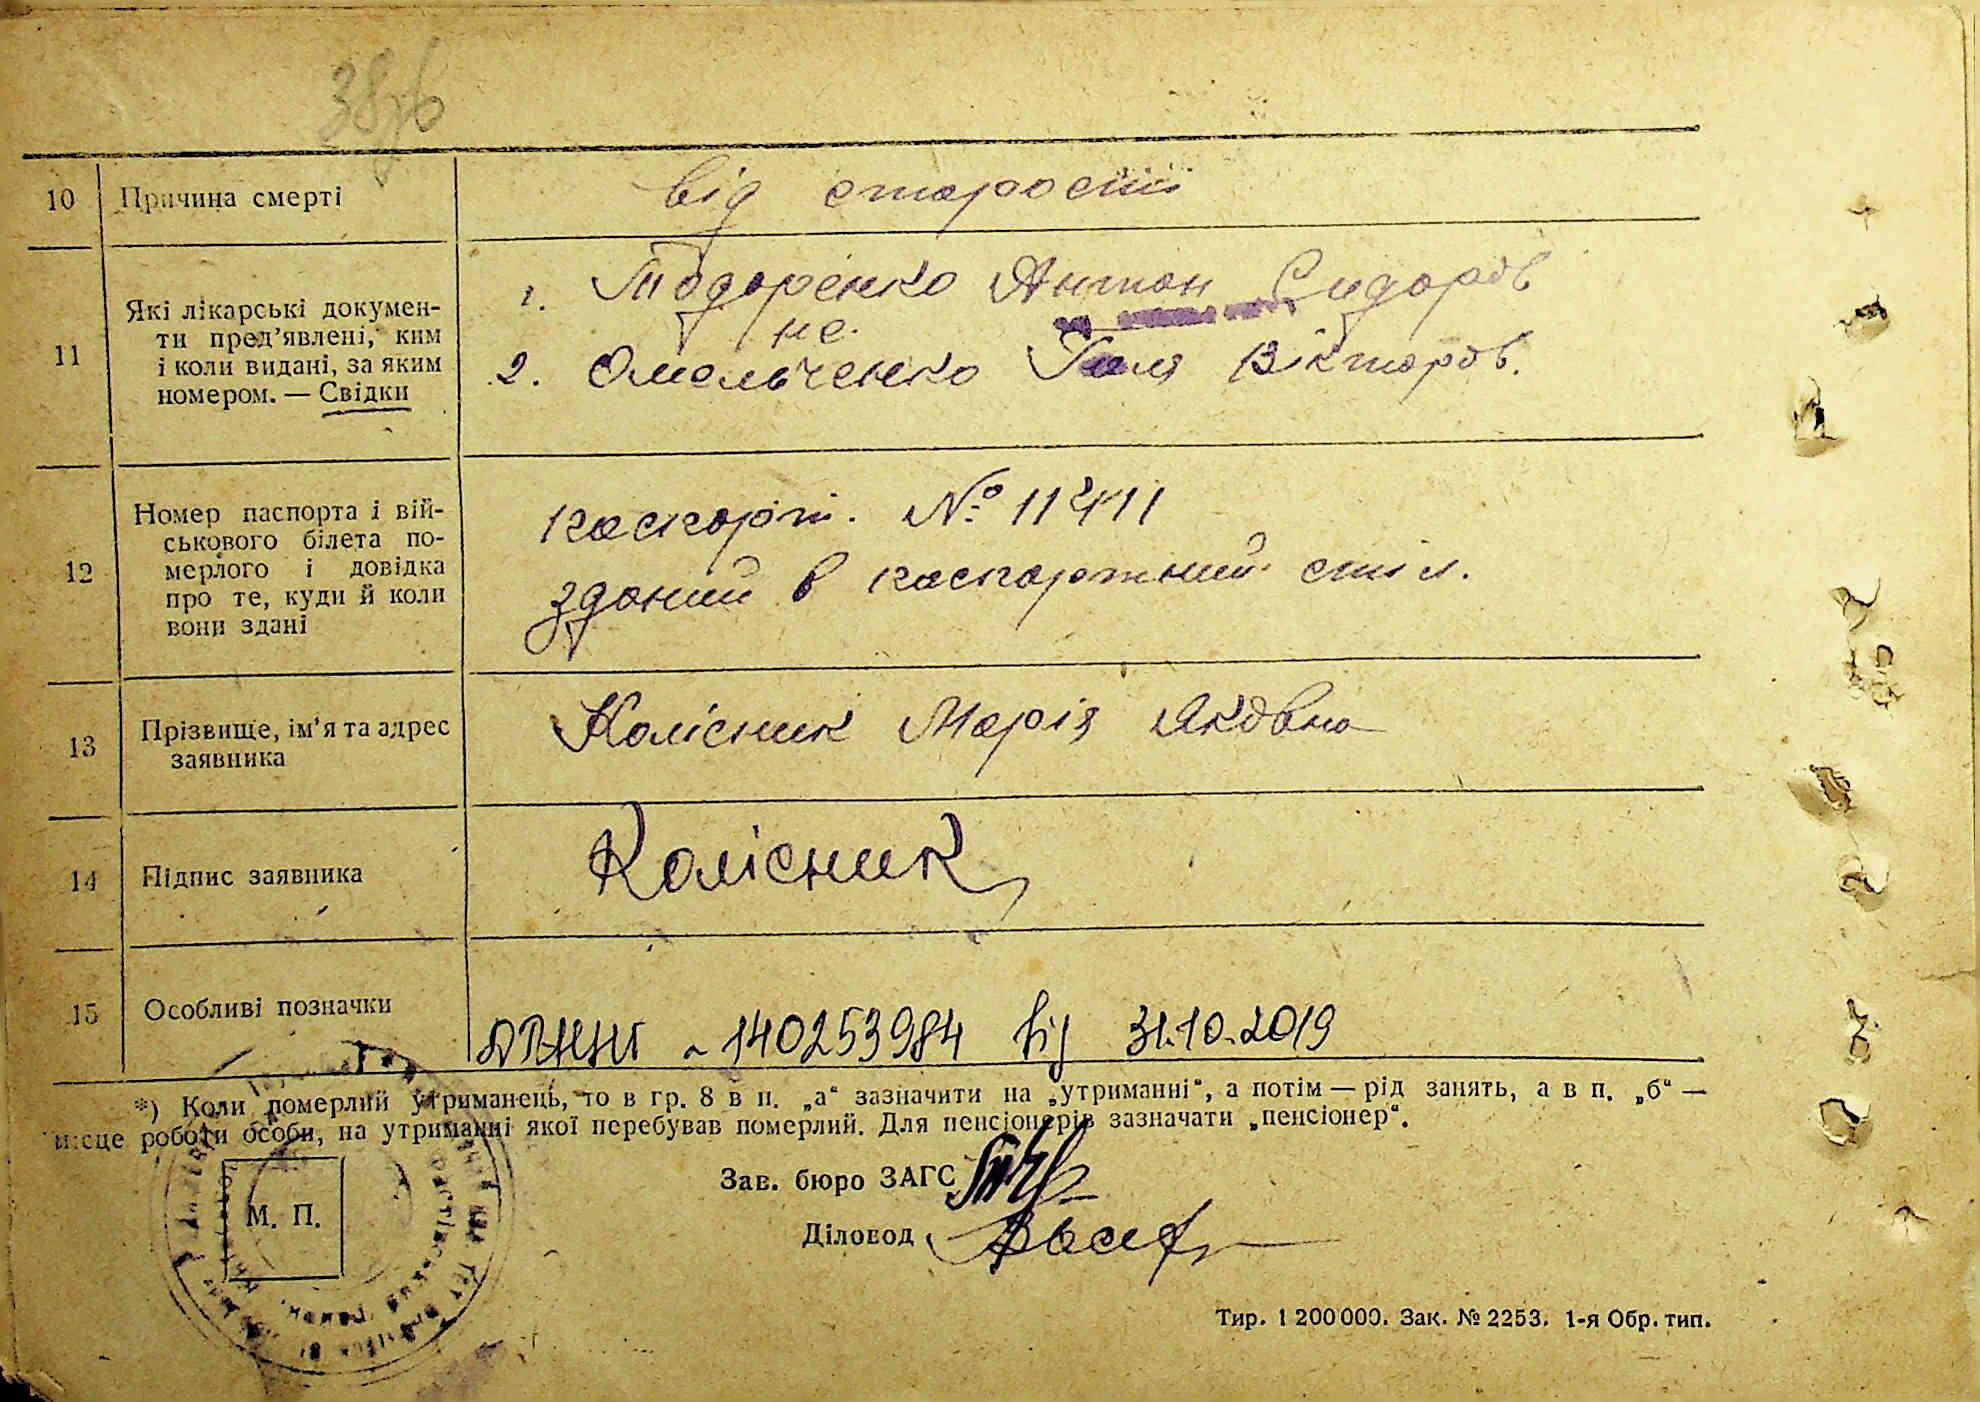 10 Причина смерті від старості
11 Які лікарські докумен-
ти пред’явлені, ким
і коли видані, за яким
номером. — Свідки
1. Тодоренко Антон Сидоров
не
2. Омельченко Галя Вікторов.
12 Номер паспорта і вій-
ськового білета по-
мерлого і довідка
про те, куди й коли
вони здані
паспорт. № 112411
зданий в паспортний стіл.
13 Прізвище, ім’я та адрес
заявника
Колісник Марія Яковна
14 Підпис заявника Колісник
15 Особливі позначки
140253984 від 31.10.2019
*) Коли померлий утриманець, то в гр. 8 в п. „а“ зазначити на „утриманні“, а потім — рід занять, а в п. „б“ —
місце роботи особи, на утриманні якої перебував померлий. Для пенсіонерів зазначати „пенсіонер“.
Зав. бюро ЗАГС
М. П.
Діловод
Тир. 1 200 000. Зак. № 2253. 1-я Обр. тип.